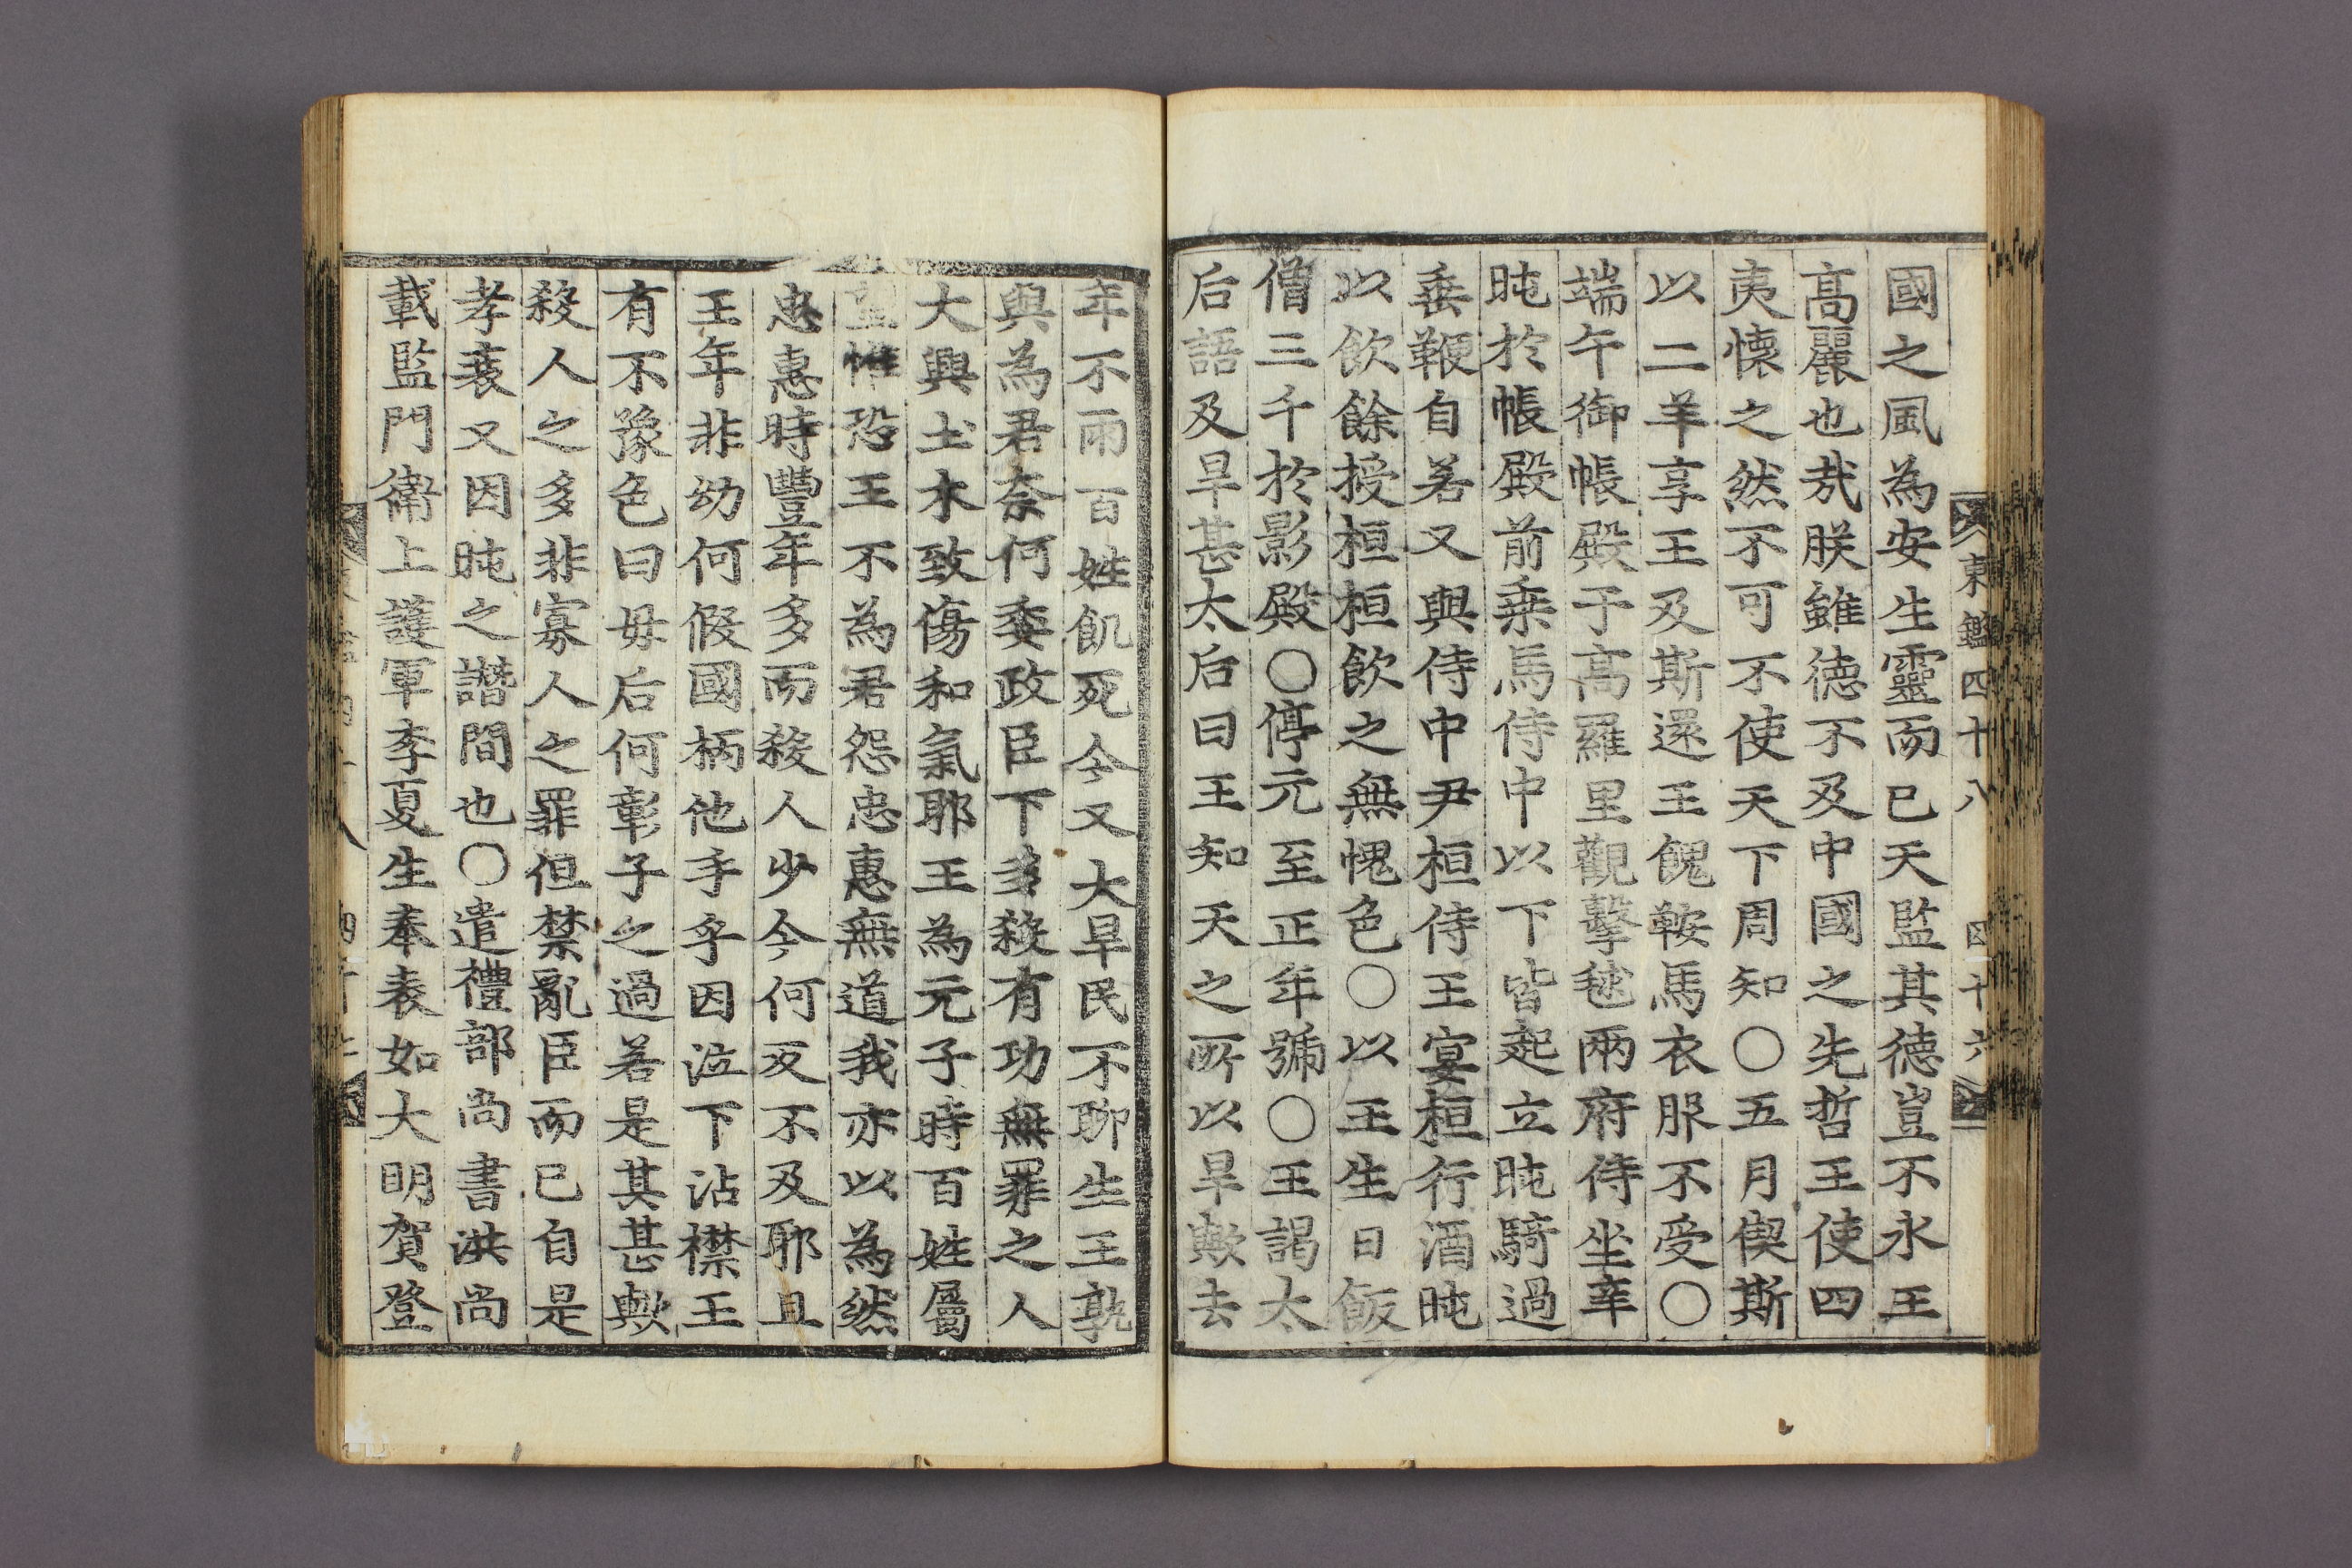 東鑑四十八 四十六
國之風為安生靈而已天監其德豈不永王
高麗也哉朕雖德不及中國之先哲王使四
夷懷之然不可不使天下周知〇五月偰斯
以二羊享王及斯還王餽鞍馬衣服不受〇
端午御帳殿于高羅里觀擊毬兩府侍坐辛
旽於帳殿前乗馬侍中以下皆起立旽騎過
垂鞭自若又與侍中尹桓侍王宴桓行酒旽
以飲餘授桓桓飲之無愧色〇以王生日飯
僧三千於影殿〇停元至正年號〇王謁太
后語及旱甚太后曰王知天之所以旱歟去
年不雨百姓飢死今又大旱民不聊生王孰
與為君奈何委政臣下多殺有功無罪之人
大興土木致傷和氣耶王為元子時百姓屬
望惟恐王不為君怨忠惠無道我亦以為然
忠惠時豐年多而殺人少今何反不及耶且
王年非幼何假國柄他手乎因泣下沾襟王
有不豫色曰毋后何彰子之過若是其甚歟
殺人之多非寡人之罪但禁亂臣而已自是
孝衰又因旽之譖間也〇遣禮部尚書洪尚
載監門衛上護軍李夏生奉表如大明賀登